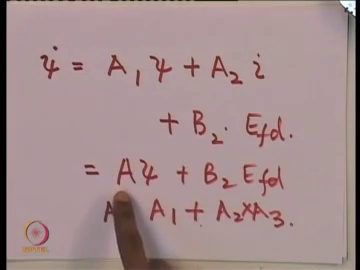 ψ̇ = A₁ ψ + A₂ i
+ B₂ · E_fd.
= A ψ + B₂ E_fd
A A₁ + A₂ × A₃.